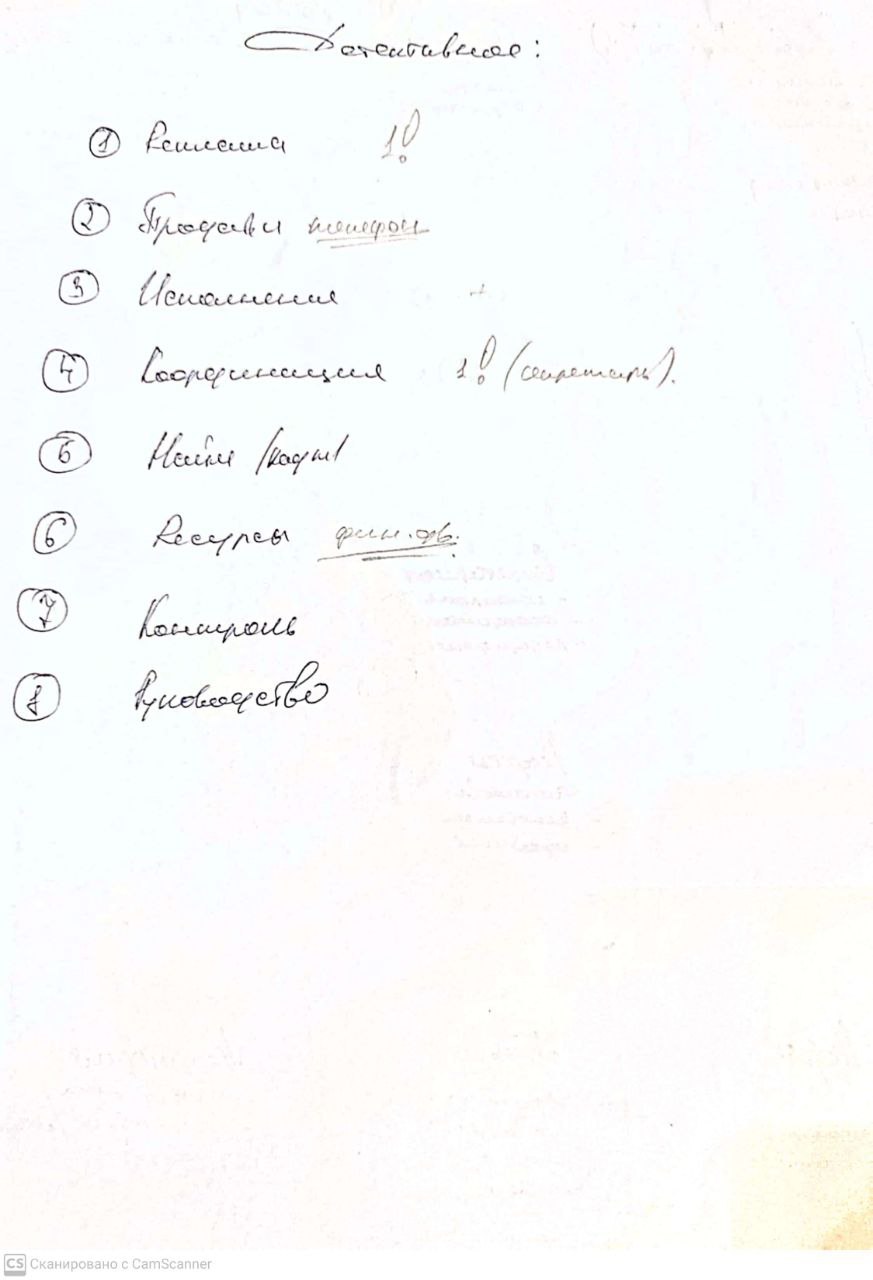 Детективное:
① Реклама 1!
② Продажи телефон
③ Исполнение +
④ Координация 1! (секретарь).
⑤ Найм (кадры)
⑥ Ресурсы фин.
⑦ Контроль
⑧ Руководство
CS Сканировано с CamScanner